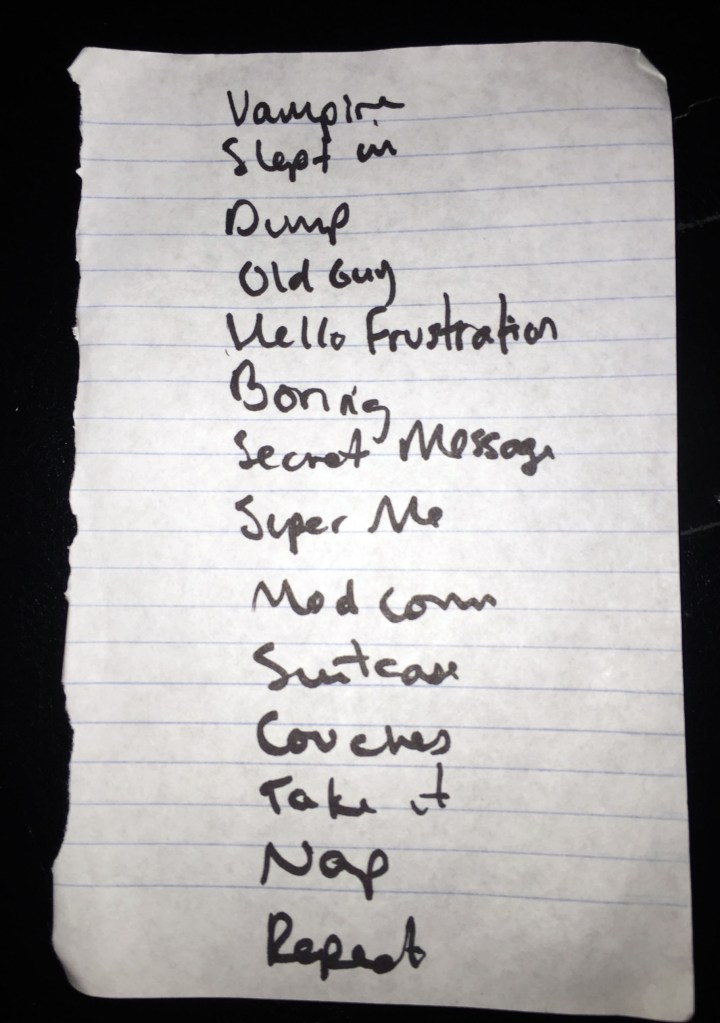 Vampire
Slept in
Dump
Old Guy
Hello Frustration
Boring
Secret Message
Super Me
Mod Comm
Suitcase
Couches
Take it
Nap
Repeat